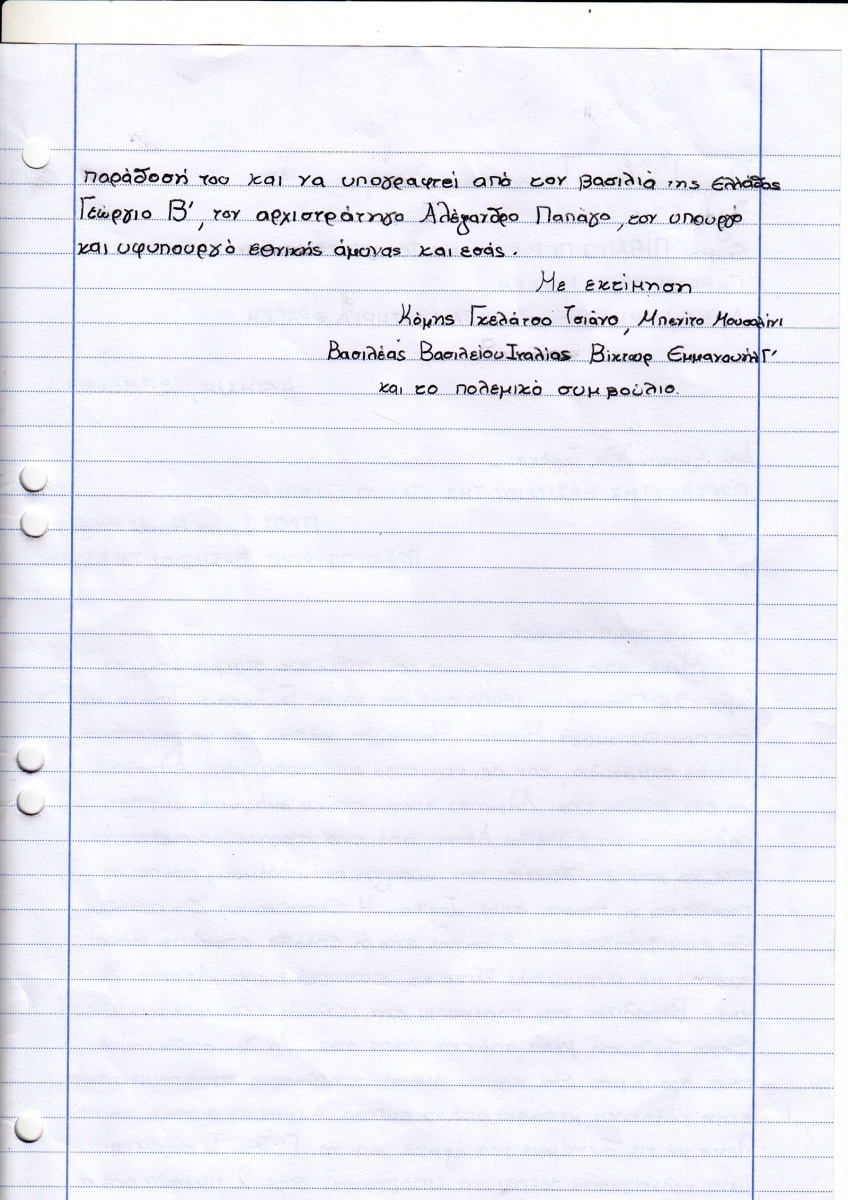 παράδοσή του και να υπογραφτεί από τον βασιλιά της Ελλάδας
Γεώργιο Β', τον αρχιστράτηγο Αλέξανδρο Παπάγο, τον υπουργό
και υφυπουργό εθνικής άμυνας και εσάς.
Με εκτίμηση
Κόμης Γκελάτσο Τσιάνο, Μπενίτο Μουσολίνι
Βασιλέας Βασιλείου Ιταλίας Βίκτωρ Εμμανουήλ Γ'
και το πολεμικό συμβούλιο.